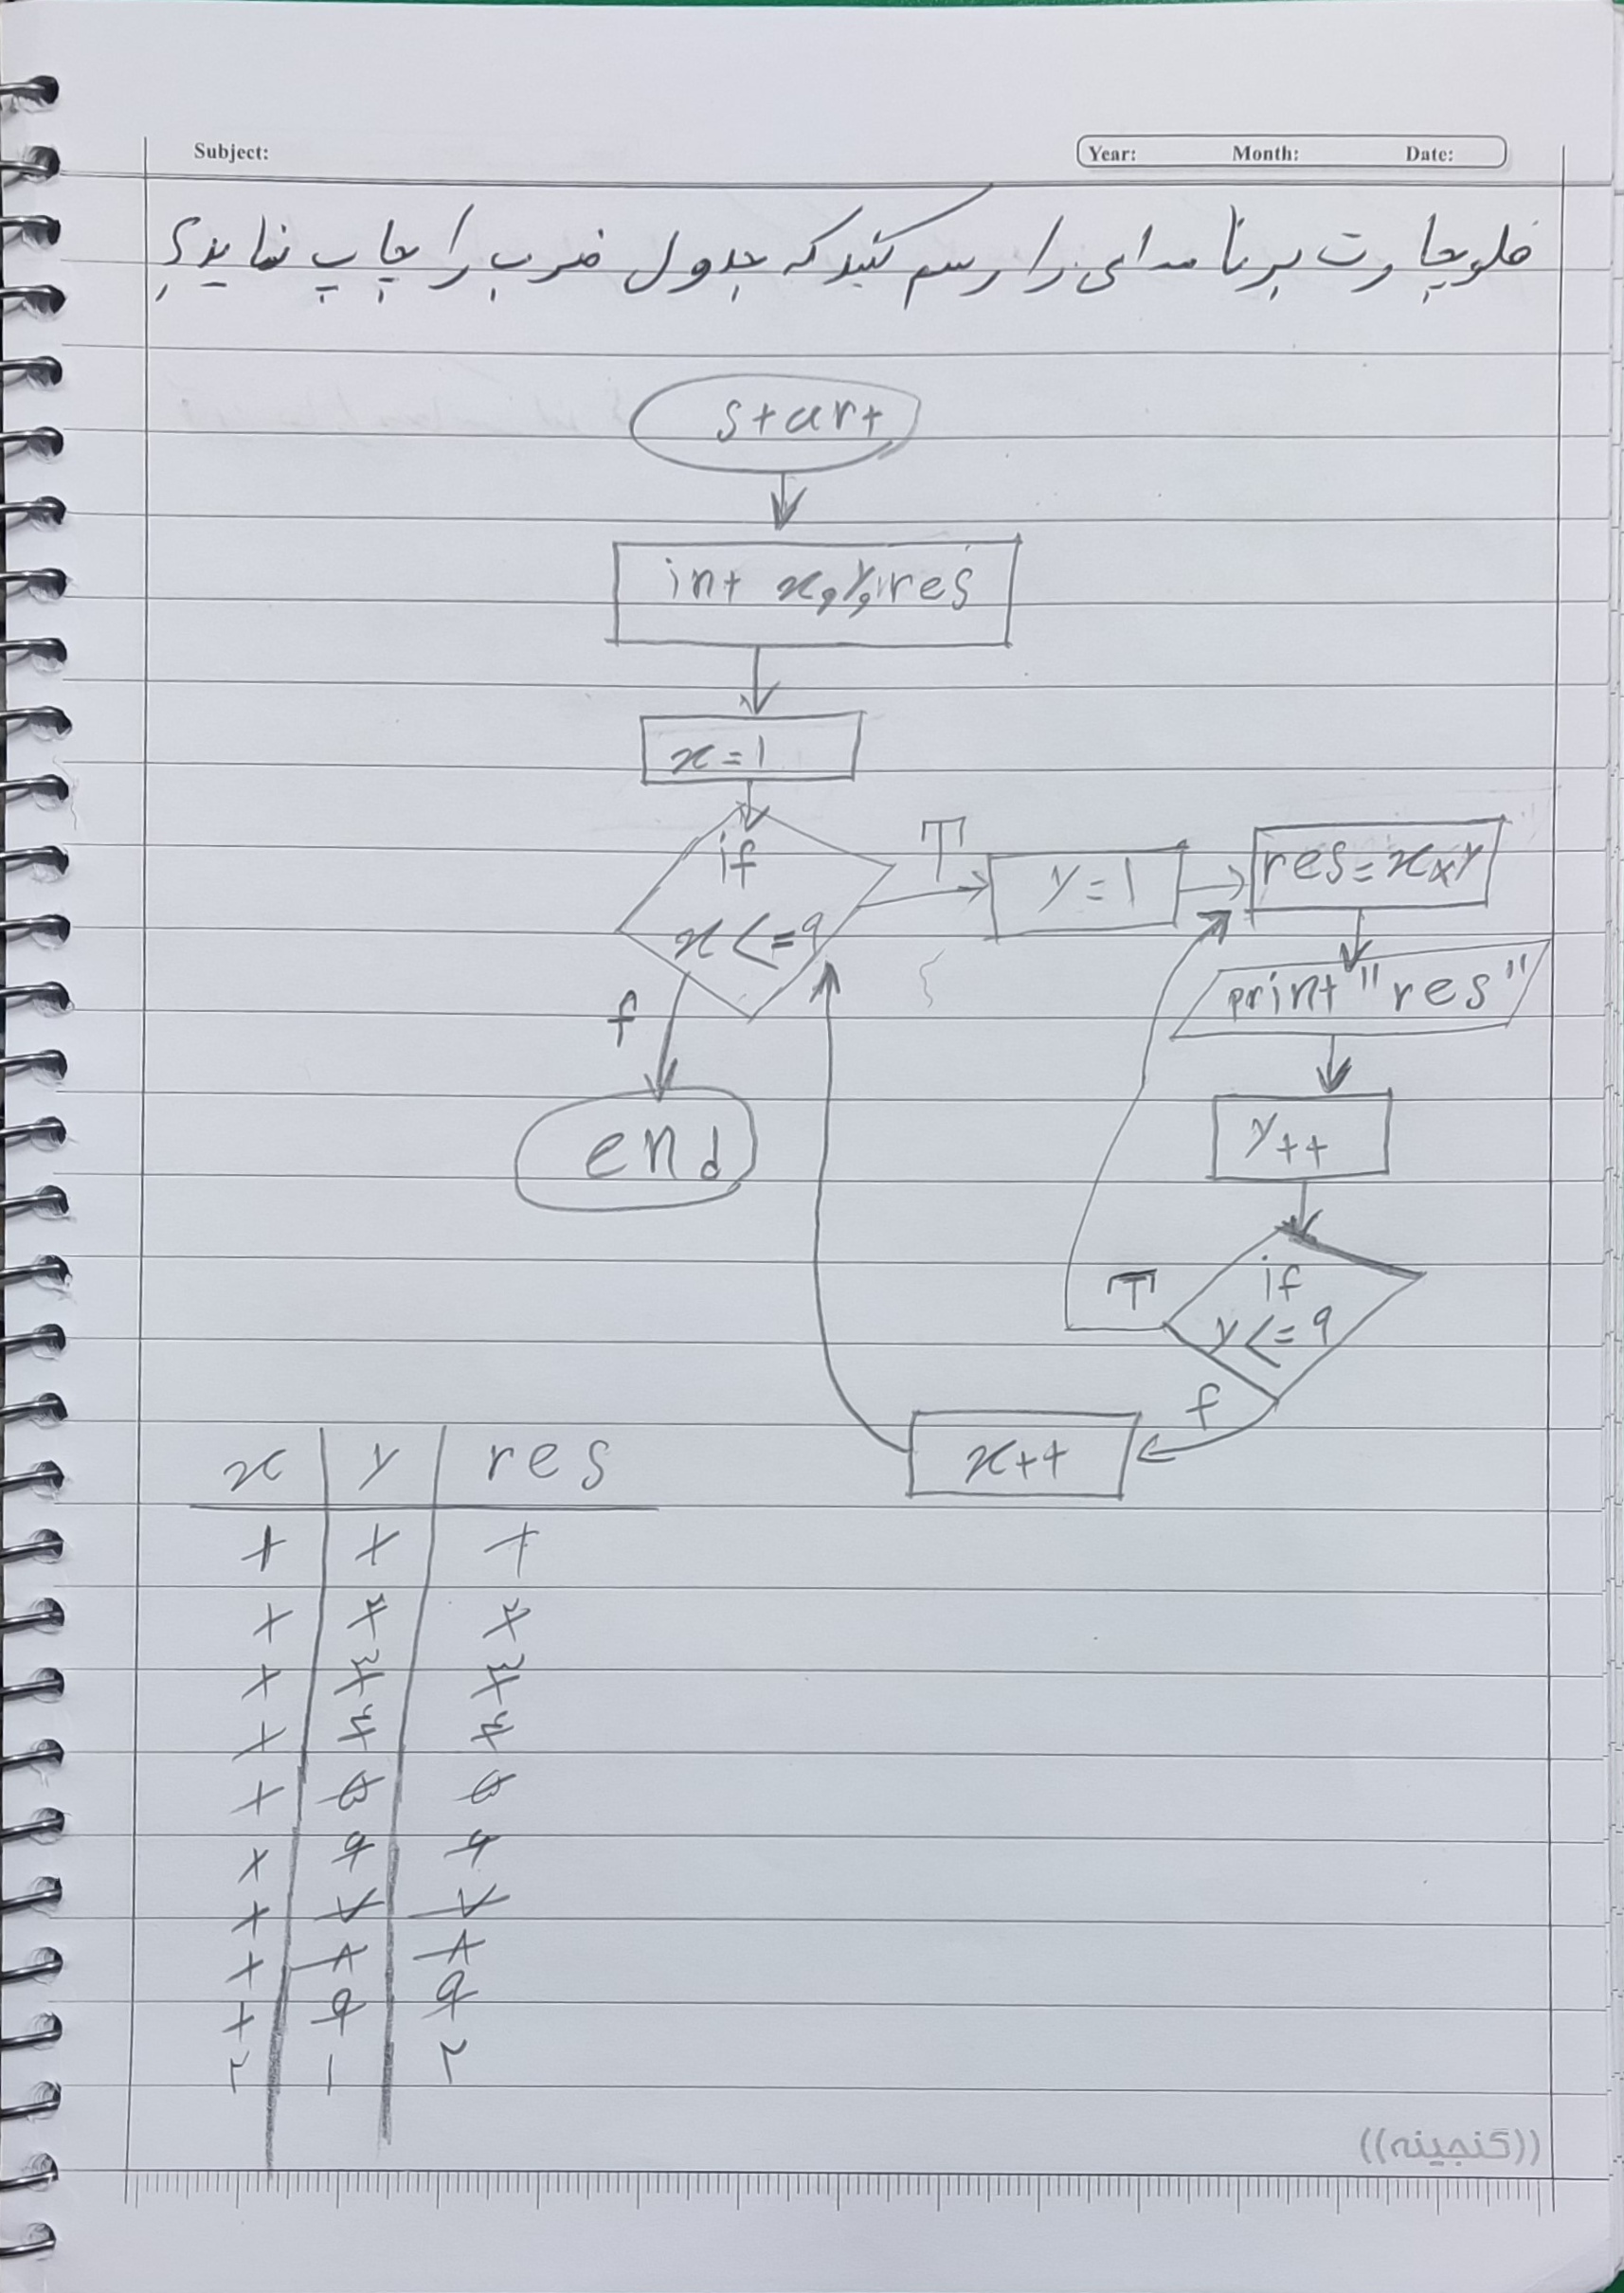 Subject:
Year: Month: Date:
فلوچارت برنامه‌ای را رسم کنید که جدول ضرب را چاپ نماید؟
start
int x,y,res
x=1
if
x<=9
T
y=1
res=x×y
print "res"
y++
if
y<=9
T
f
x++
f
end
x y res
۱ ۱ ۱
۱ ۲ ۲
۱ ۳ ۳
۱ ۴ ۴
۱ ۵ ۵
۱ ۶ ۶
۱ ۷ ۷
۱ ۸ ۸
۱ ۹ ۹
۲ ۱ ۲
((گنجینه))